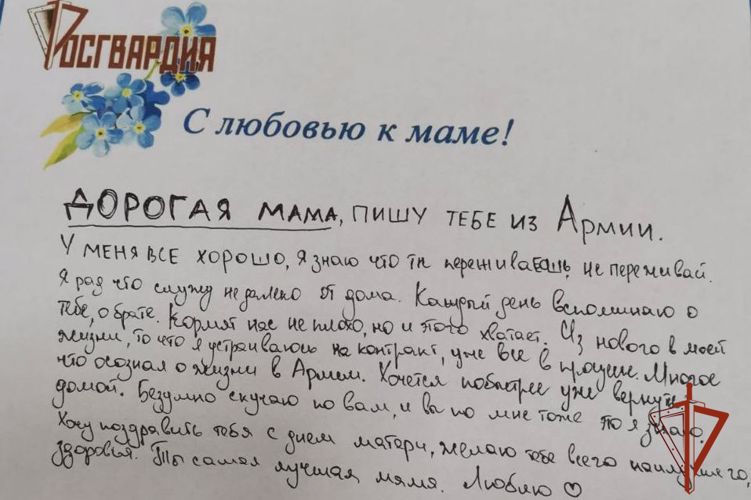 РОСГВАРДИЯ
С любовью к маме!
ДОРОГАЯ МАМА, ПИШУ ТЕБЕ ИЗ Армии.
У МЕНЯ ВСЕ ХОРОШО, Я знаю что ты переживаешь, не переживай.
Я рад что служу не далеко от дома. Каждый день вспоминаю о
тебе, о брате. Кормят нас не плохо, но и этого хватает. Из нового в моей
жизни, то что я устраиваюсь на контракт, уже все в процессе. Многое
что осознал о жизни в Армии. Хочется побыстрее уже вернуться
домой. Безумно скучаю по вам, и вы по мне тоже это я знаю.
Хочу поздравить тебя с днем матери, желаю тебе всего наилучшего,
здоровья. Ты самая лучшая мама. Люблю ♡